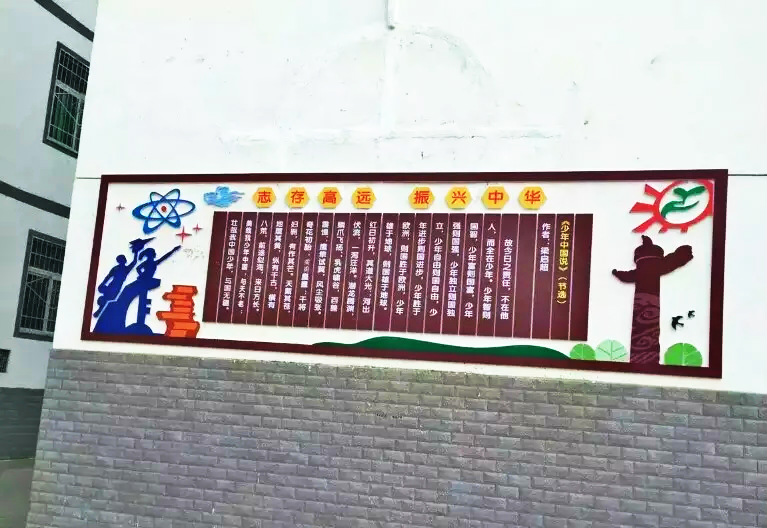 志存高远 振兴中华
《少年中国说》（节选）
作者：梁启超
故今日之责任，不在他
人，而全在少年。少年智则
国智，少年富则国富，少年
强则国强，少年独立则国独
立，少年自由则国自由，少
年进步则国进步，少年胜于
欧洲，则国胜于欧洲，少年
雄于地球，则国雄于地球。
红日初升，其道大光；河出
伏流，一泻汪洋。潜龙腾渊，
鳞爪飞扬；乳虎啸谷，百兽
震惶；鹰隼试翼，风尘吸张。
奇花初胎，矞矞皇皇；干将
发硎，有作其芒。天戴其苍，
地履其黄。纵有千古，横有
八荒。前途似海，来日方长。
美哉我少年中国，与天不老；
壮哉我中国少年，与国无疆。